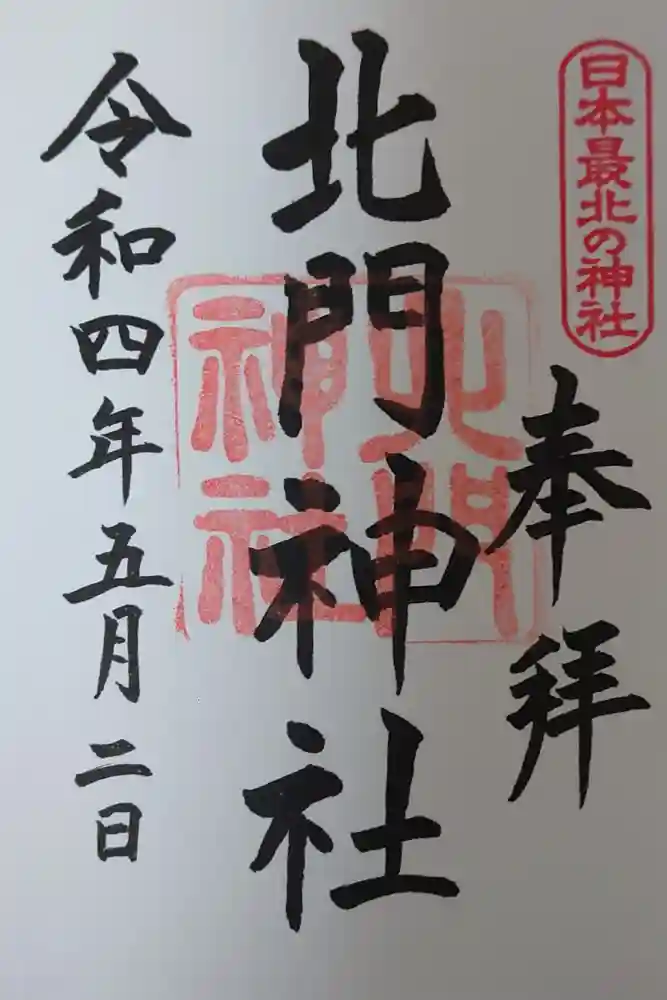 日本最北の神社
奉拝
北門神社
北門神社
令和四年五月二日